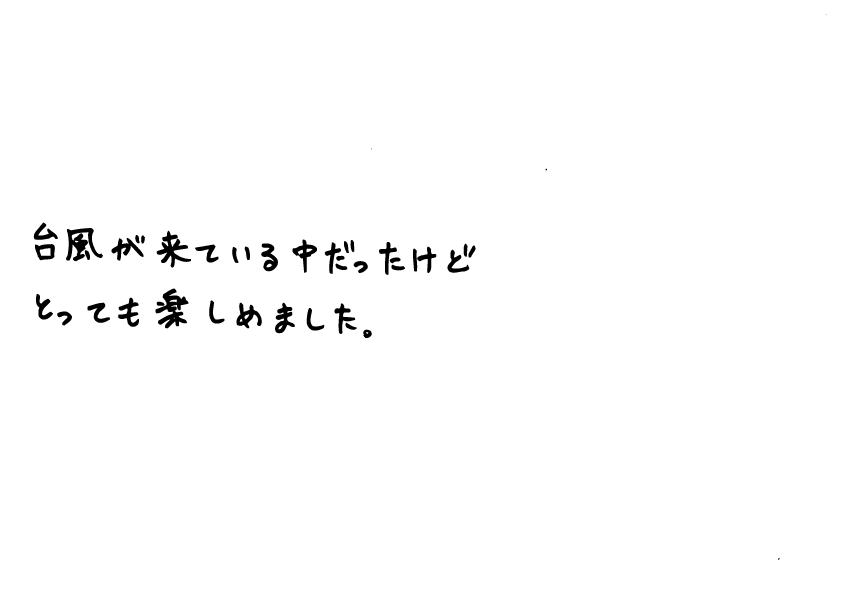 台風が来ている中だったけど
とっても楽しめました。